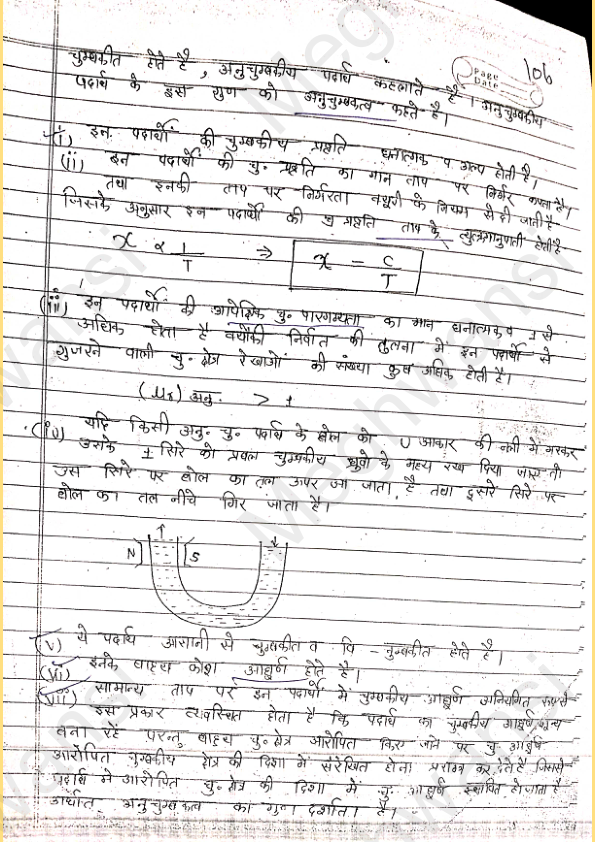 106
Page
Date
चुम्बकीत होते है, अनुचुम्बकीय पदार्थ कहलाते है। अनुचुम्बकीय
पदार्थ के इस गुण को अनुचुम्बकत्व कहते है।
(i) इन पदार्थों की चुम्बकीय प्रवृति धनात्मक व अल्प होती है।
(ii) इन पदार्थों की चु. प्रवृति का मान ताप पर निर्भर करता है।
तथा इनकी ताप पर निर्भरता क्यूरी के नियम से दी जाती है-
जिसके अनुसार इन पदार्थों की चु प्रवृति ताप के व्युत्क्रमानुपाती होती है
x ∝ 1/T ⇒ x = C/T
(iii) इन पदार्थों की आपेक्षिक चु. पारगम्यता का मान धनात्मक व 1 से
अधिक होता है क्योंकी निर्वात की तुलना में इन पदार्थों से
गुजरने वाली चु. क्षेत्र रेखाओं की संख्या कुछ अधिक होती है।
(μr) अनु. > 1
(iv) यदि किसी अनु. चु. पदार्थ के घोल को U आकार की नली में भरकर
उसके 1 सिरे को प्रबल चुम्बकीय ध्रुवो के मध्य रख दिया जाए तो
उस सिरे पर घोल का तल ऊपर आ जाता है तथा दुसरे सिरे पर
घोल का तल नीचे गिर जाता है।
N S
(v) ये पदार्थ आसानी से चुम्बकीत व वि-चुम्बकीत होते है।
(vi) इनके बाह्य कोश आद्युर्ण होते है।
(vii) सामान्य ताप पर इन पदार्थों में चुम्बकीय आद्युर्ण अनियमित रूप से
इस प्रकार व्यवस्थित होता है कि पदार्थ का चुम्बकीय आद्युर्ण शून्य
बना रहे परन्तु बाह्य चु. क्षेत्र आरोपित किए जाने पर चु. आद्युर्ण
आरोपित चुम्बकीय क्षेत्र की दिशा में संरेखित होना प्रारम्भ कर देते है जिससे
पदार्थ में आरोपित चु. क्षेत्र की दिशा में चु. आद्युर्ण स्थापित हो जाता है
अर्थात् अनुचुम्बकत्व का गुण दर्शाता है।
Meghwansi